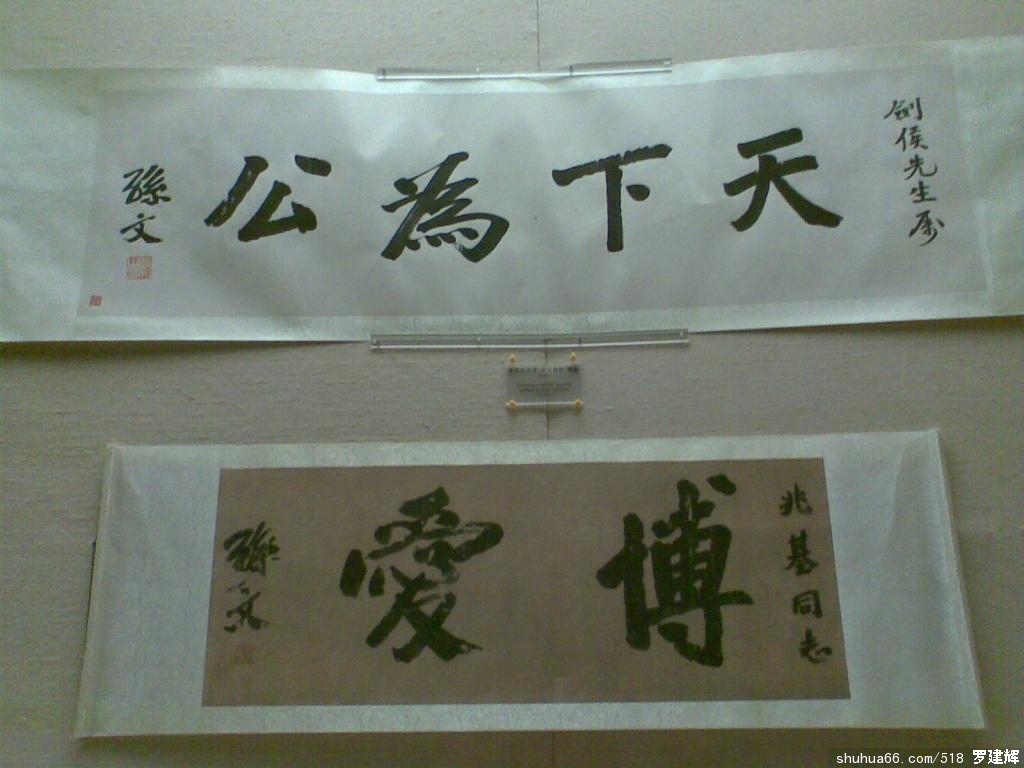 劍侯先生屬
天下為公
孫文
兆基同志
博愛
孫文
shuhua66.com/518 罗建辉